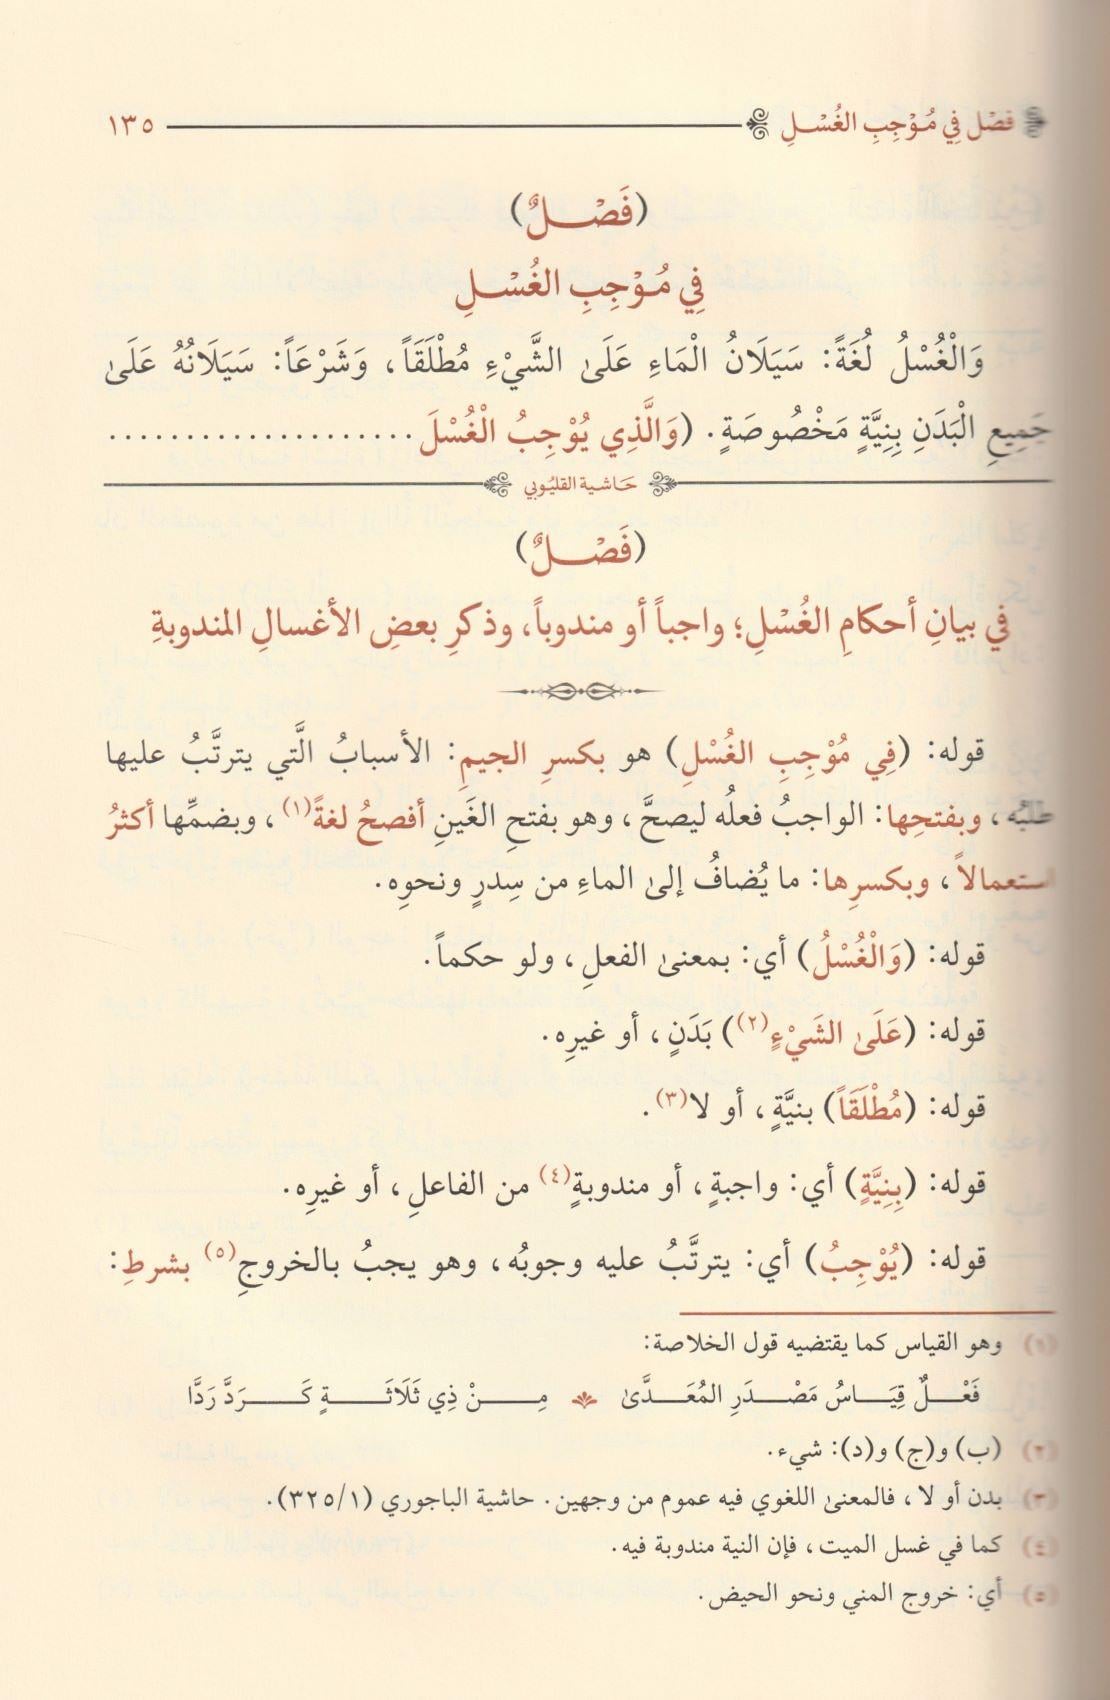 فَصْل فِي مُوْجِبِ الغُسْلِ ١٣٥
(فَصْلٌ)
فِي مُوْجِبِ الغُسْلِ
وَالْغُسْلُ لُغَةً: سَيَلَانُ الْمَاءِ عَلَىٰ الشَّيْءِ مُطْلَقَاً، وَشَرْعَاً: سَيَلَانُهُ عَلَىٰ
جَمِيعِ الْبَدَنِ بِنِيَّةٍ مَخْصُوصَةٍ. (وَالَّذِي يُوْجِبُ الْغُسْلَ....................
حَاشية القليُوبي
(فَصْلٌ)
في بيانِ أحكامِ الغُسْلِ؛ واجباً أو مندوباً، وذكرِ بعضِ الأغسالِ المندوبةِ
قوله: (فِي مُوْجِبِ الغُسْلِ) هو بكسرِ الجيمِ: الأسبابُ الَّتي يترتَّبُ عليها
طلبُه، وبفتحِها: الواجبُ فعلُه ليصحَّ، وهو بفتحِ الغَينِ أفصحُ لغةً(١)، وبضمِّها أكثرُ
استعمالاً، وبكسرِها: ما يُضافُ إلىٰ الماءِ من سِدرٍ ونحوِه.
قوله: (وَالْغُسْلُ) أي: بمعنىٰ الفعلِ، ولو حكماً.
قوله: (عَلَىٰ الشَيْءٍ(٢)) بَدَنٍ، أو غيرِه.
قوله: (مُطْلَقَاً) بنيَّةٍ، أو لا(٣).
قوله: (بِنِيَّةٍ) أي: واجبةٍ، أو مندوبةٍ(٤) من الفاعلِ، أو غيرِه.
قوله: (يُوْجِبُ) أي: يترتَّبُ عليه وجوبُه، وهو يجبُ بالخروجِ(٥) بشرطِ:
(١) وهو القياس كما يقتضيه قول الخلاصة:
فَعْلٌ قِيَاسُ مَصْدَرِ المُعَدَّىٰ مِنْ ذِي ثَلَاثَةٍ كَرَدَّ رَدَّا
(٢) (ب) و(ج) و(د): شيء.
(٣) بدن أو لا، فالمعنىٰ اللغوي فيه عموم من وجهين. حاشية الباجوري (٣٢٥/١).
(٤) كما في غسل الميت، فإن النية مندوبة فيه.
(٥) أي: خروج المني ونحو الحيض.